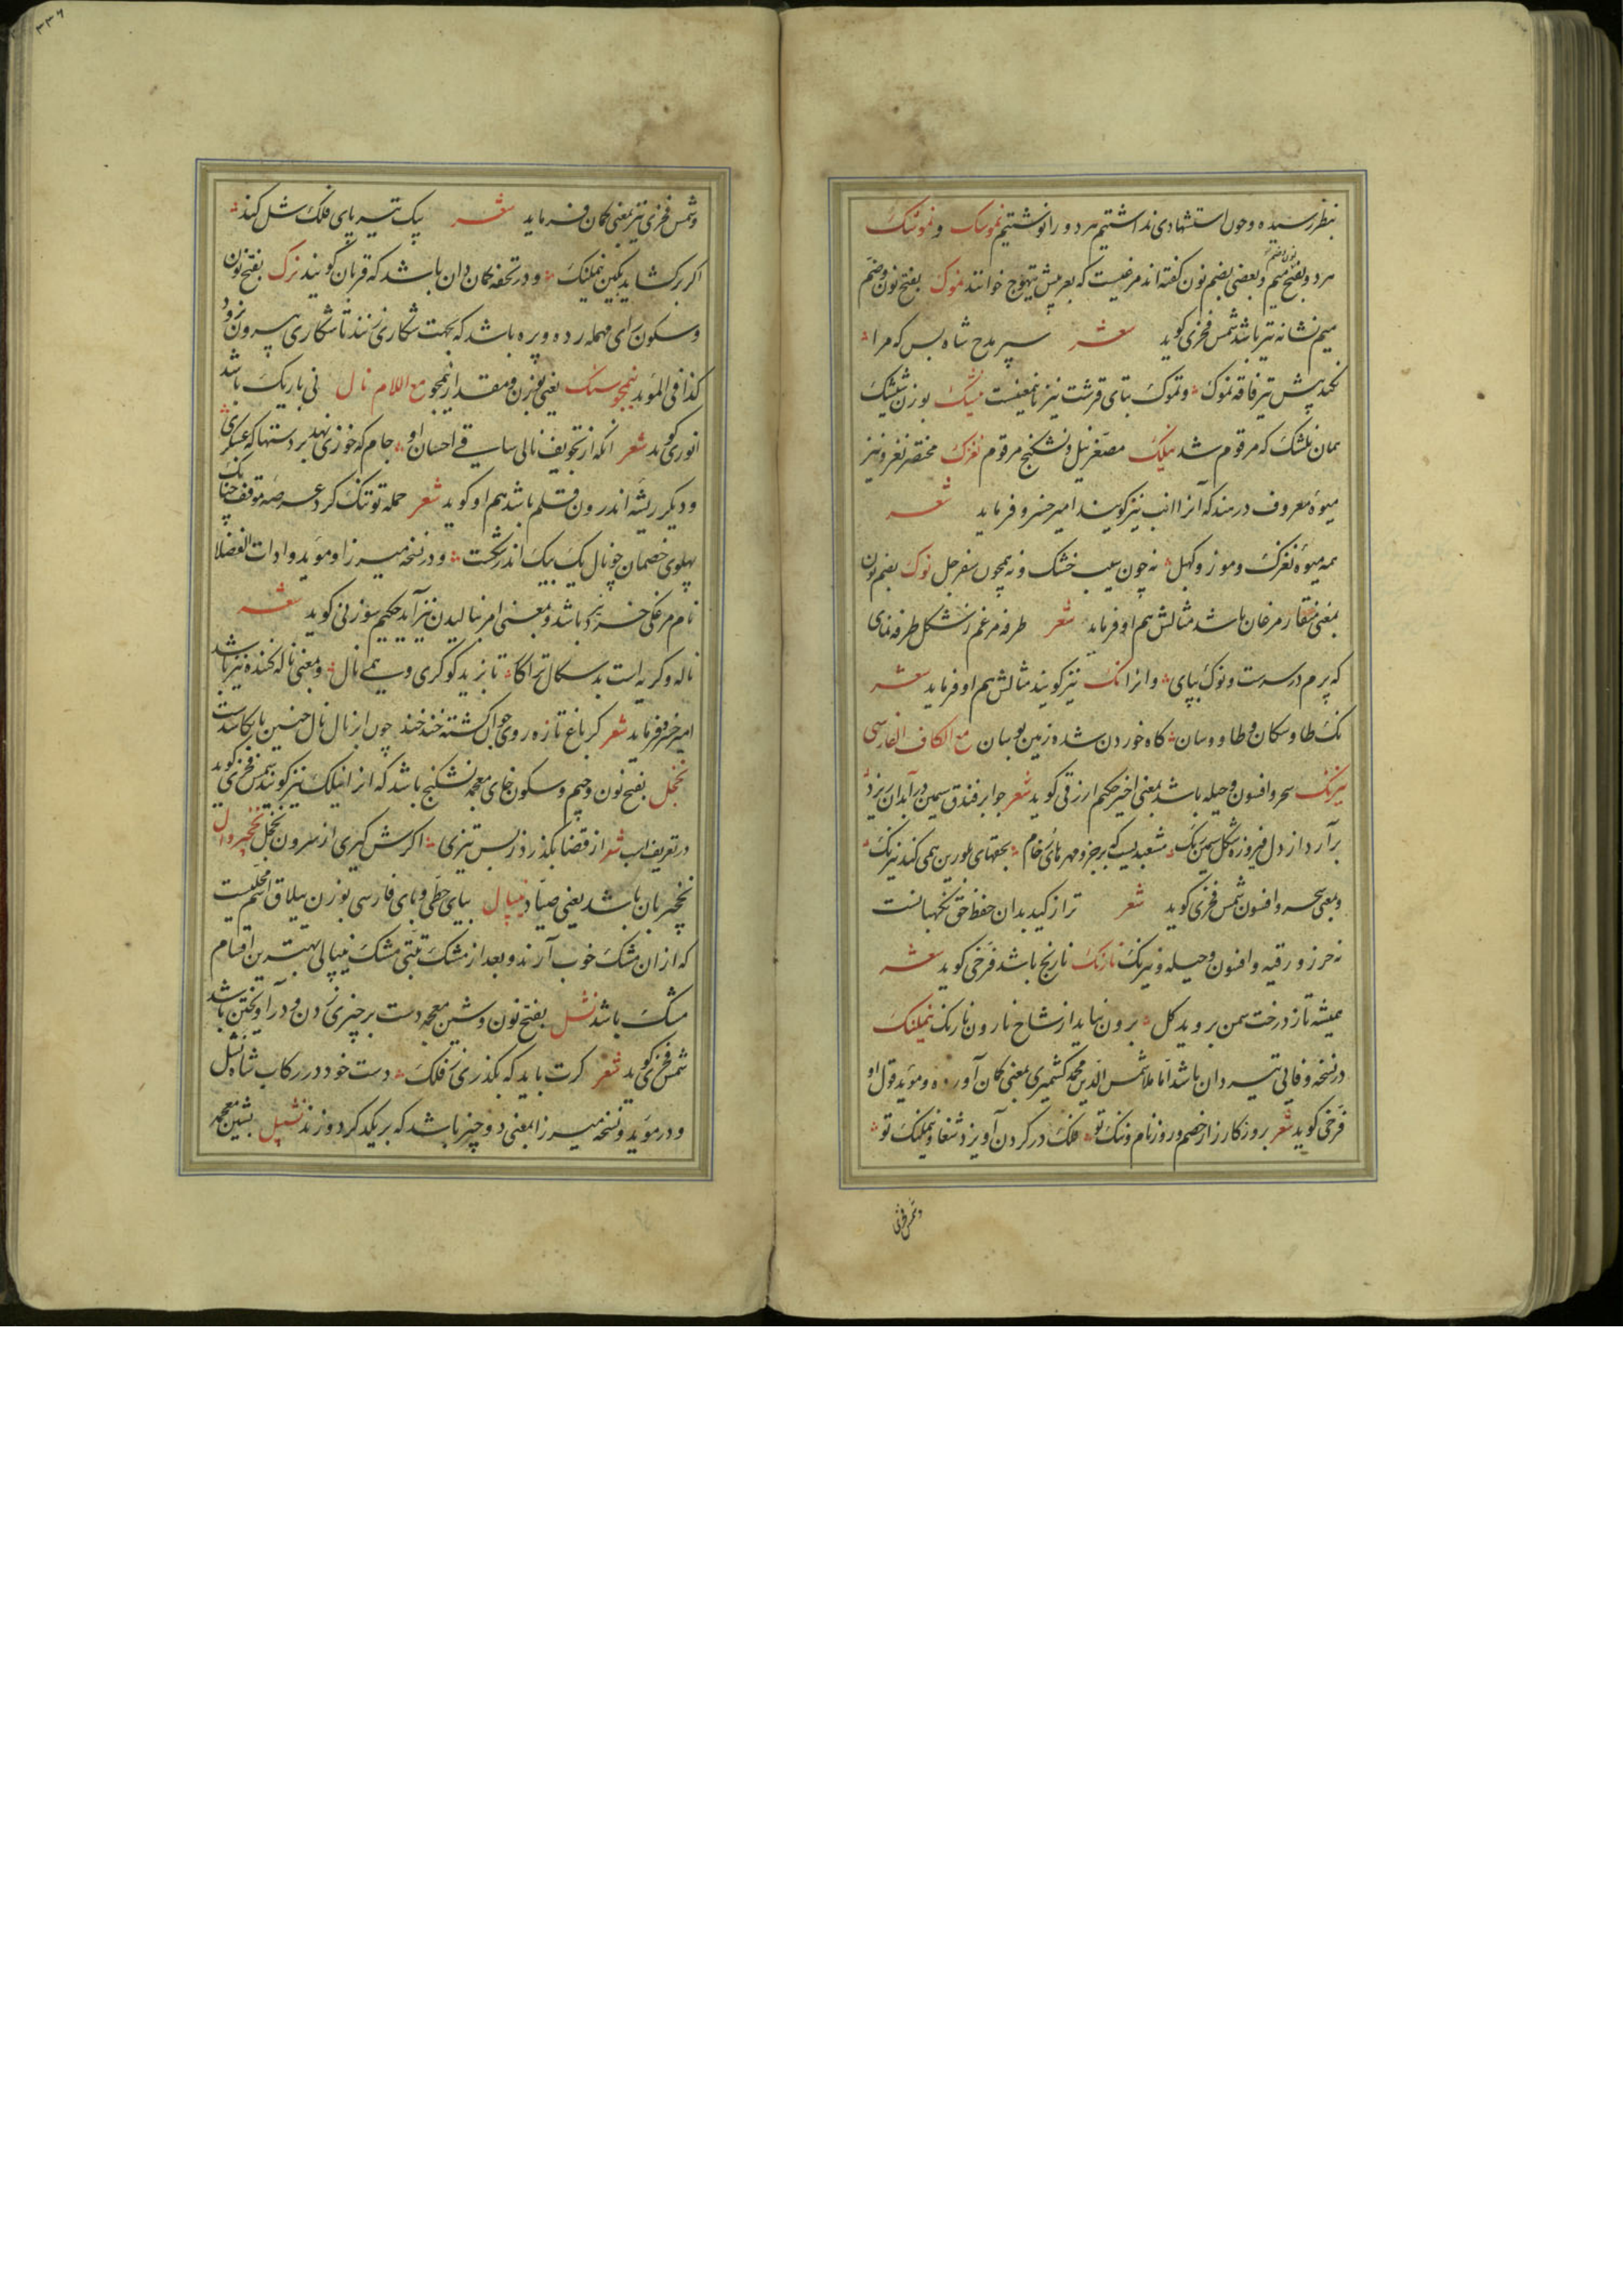 بنظر رسیده و چون استشهادی نداشتیم هر دو را نوشتیم نموسک و نموشک
هر دو بفتح میم و بعضی بضم نون گفته‌اند مرغیست که بعربیش تیهوج خوانند نموک بفتح نون و ضم
میم نشانه تیر باشد شمس فخری کوید شعر سپر مدح شاه بس که مرا
نکند پیش تیر فاقه نموک و تموک بتای قرشت نیز باینمعنیست نیشک بوزن شیشک
همان نلشک که مرقوم شد نیلک مصغر نیل و نشکنج مرقوم نغزک مختصر نغز و نیز
میوه معروف در هند که آنرا انب نیز کویند امیر خسرو فرماید شعر
همه میوه نغزک و موز و کهل نه چون سیب خشک و نه همچون سفرجل نوک بضم نون
بمعنی منقار مرغان باشد مثالش هم او فرماید شعر طرفه مرغم ز شکل طرفه نمای
که پرم در سرست و نوک بپای و انرا نک نیز کویند مثالش هم او فرماید شعر
نک طاوسکان و طاووسان کاه خوردن شده زمین بوسان مع الکاف الفارسی
نیرنک سحر و افسون و حیله باشد بمعنی اخیر حکیم ارزقی کوید شعر جو ابر فندق سیمین در آبدان ریزد
برآرد از دل فیروزه شکل سیمین رنک مشعبدیست که بر خرد مهره‌های رخام بحقهای بلورین همی کند نیرنک
و بمعنی سحر و افسون شمس فخری کوید شعر ترا ز کید بدان حفظ حق نکهبانست
نه حرز و رقیه و افسون و حیله و نیرنک نارنک نارنج باشد فرخی کوید شعر
همیشه تا ز درخت سمن بروید کل برون نیاید از شاخ نارون نارنک نیملنک
در نسخه وفایی تیردان باشد اما ملا شمس الدین محمد کشمیری بمعنی کمان آورده و موید قول او
فرخی کوید شعر بروز کارزار خصم و روز نام و ننک تو فلک در کردن آویزد شغا و نیملنک تو
و شمس فخری
و شمس فخری نیز بمعنی کمان فرماید شعر پیک تیر پای فلک شل کند
اکر برکشاید بکین نیملنک و در تحفه کمان دان باشد که قربان کویند نرک بفتح نون
و سکون رای مهمله رده و پره باشد که بجهت شکاری زنند تا شکاری بیرون نرود
کذا فی الموید نیمجوسنک یعنی بوزن و مقدار نیمجو مع اللام نال نی باریک باشد
انوری کوید شعر انکه از تجویف نالی ساقی احسان او جام که خوزی نهد بر دستها که عسکری
و دیکر ریشه اندرون قلم باشد هم او کوید شعر حمله تو تنک کرد عرصه موقف چنانک
پهلوی خصمان چو نال یک بیک اندر شکست و در نسخه میرزا و موید و ادات الفضلا
نام مرغکی خرد باشد و بمعنی امر بنالیدن نیز آید حکیم سوزنی کوید شعر
ناله و کریه است بدسکال ترا کار تا بزید کو کری و همی نال و بمعنی ناله کننده نیز باشد
امیر خسرو فرماید شعر کر باغ تازه روی جوان کشته خند خند چون ابر نال نال چنین با بکاشدست
نخجل بفتح نون و جیم و سکون خای معجمه نشکنج باشد که انرا نیلک نیز کویند شمس فخری کوید
در تعریف اسب شعر از قضا بکذرد ز بس تیزی اکرش کیری از سرون نخجل نخجیروال
نخجیربان باشد یعنی صیاد نیپال بیای حطی و بای فارسی بوزن ییلاق اسم محلیست
که از ان مشک خوب آرند و بعد از مشک تبتی مشک نیپالی بهترین اقسام
مشک باشد نشل بفتح نون و شین معجمه دست بر چیزی زدن و درآویختن باشد
شمس فخری کوید شعر کرت باید که بکذری ز فلک دست خود در رکاب شاه نشل
و در موید و نسخه میرزا بمعنی دو چیز باشد که بر یکدکر دوزند نشپل بشین معجمه